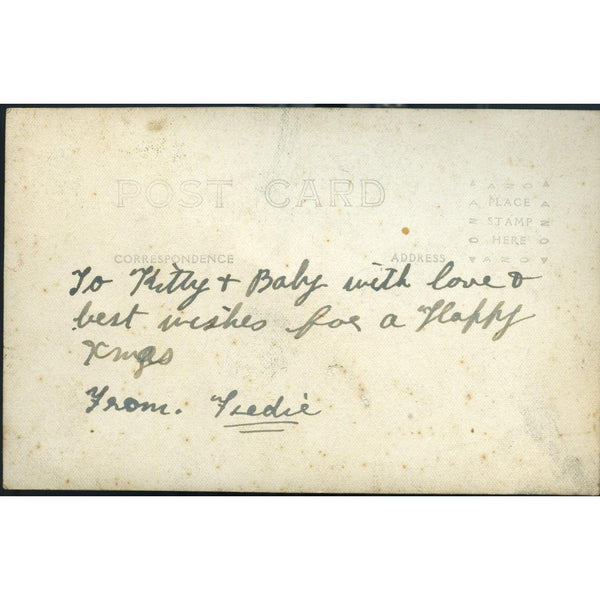 POST CARD
AZO
PLACE
STAMP
HERE
AZO
CORRESPONDENCE
ADDRESS
To Kitty + Baby with love &
best wishes for a Happy
Xmas
From. Fredie